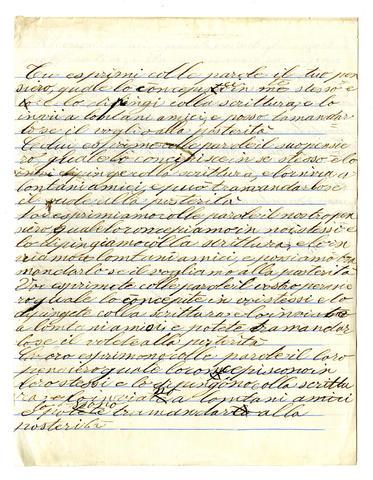 Tu esprimi colle parole il tuo pen
siero, quale lo concepisci in te stesso e
lo dipingi colla scrittura, e lo
invii a lontani amici, e posso tramandar
lo se il voglio alla posterità
Colui esprime colle parole il suo pensie
ro quale lo concepisce in se stesso e lo
dipinge colla scrittura, e lo invia a
lontani amici, e può tramandarlo se
il vuole alla posterità
Noi esprimiamo colle parole il nostro pen
siero quale lo concepiamo in noi stessi e
lo dipingiamo colla scrittura, e lo in
viamo a lontani amici, e possiamo tra
mandarlo se il vogliamo alla posterità
Voi esprimete colle parole il vostro pensie
ro quale lo concepite in voi stessi e lo
dipingete colla scrittura e lo inviate
a lontani amici e potete tramandar
lo se il volete alla posterità
Coloro esprimono colle parole il loro
pensiero quale lo concepiscono in
loro stessi e lo dipingono colla scrittu
ra, e lo inviano a lontani amici
e possono tramandarlo alla
posterità